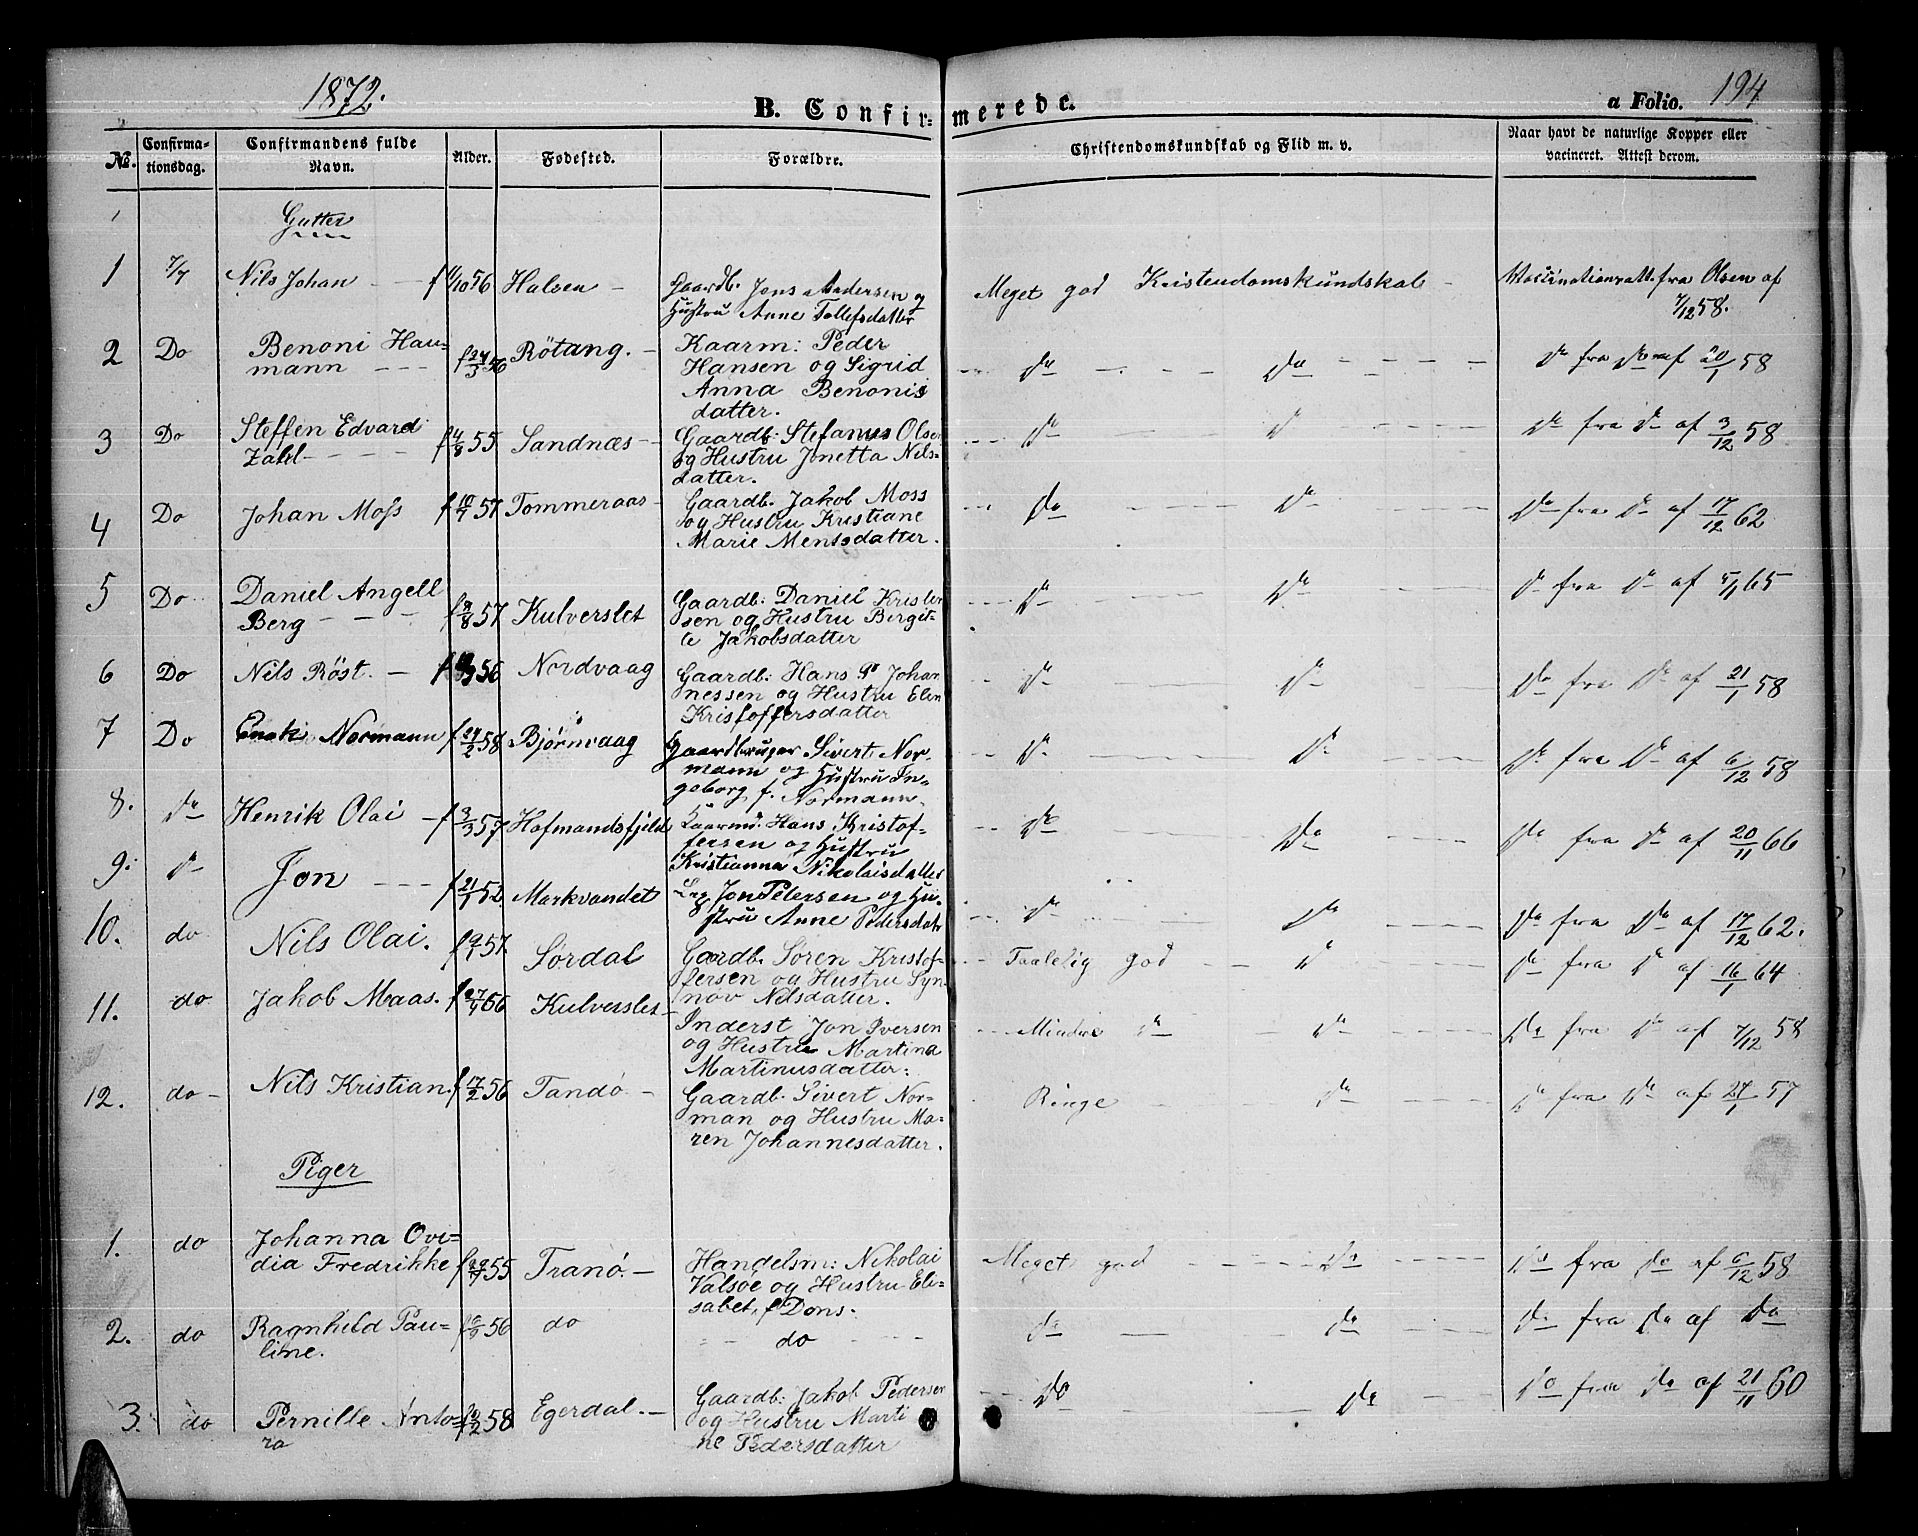 1872.
B. Confirmerede.
a Folio. 194
No. Confirmationsdag. Confirmandens fulde Navn. Alder. Fødested. Forældre. Christendomskundskab og Flid m. v. Naar havt de naturlige Kopper eller vacineret. Attest derom.
Gutter
1 7/7 Nils Johan - - f 11/10 56 Halsen - Gaardb. Jens Andersen og Meget god Kristendomskundskab - Vaccinationsatt. fra Olsen af
Hustru Anne Tollefsdatter 7/12 58.
2 Do Benoni Hau- Røtang. - Kaarm: Peder
mann - - - f 24/3 56 Hansen og Sigrid Do Do Do fra Do af 20/1 58
Anna Benonis
datter.
3 Do Steffen Edvard f 4/8 55 Sandnæs - Gaardb: Stefanus Olsen Do D Do fra Do af 3/12 58
Zahl - - - - og Hustru Jonetta Nils-
datter.
4 Do Johan Moss f 10/7 57 Tommeraas - Gaardb. Jakob Moss Do Do Do fra Do af 17/12 62
og Hustru Kristiane
Marie Mentsdatter.
5 Do Daniel Angell Do Do Do fra Do af 5/1 65
Berg - - - f 9/8 57 Kulverslet Gaardb: Daniel Krister
sen og Hustru Bergit-
te Jakobsdatter
6 Do Nils Röst. - 56 Nordvaag Gaardb: Hans P. Johan Do Do Do fra Do af 21/1 58
nessen og Hustru Elen
Kristoffersdatter
7 Do Enok Normann f 24/2 58 Bjørnvaag Gaardbruger Sivert Nor- Do Do Do fra Do af 6/12 58
mann og Hustru In-
geborg f. Normann.
8. Do Henrik Olai - f 3/3 57 Hofmandsfjeld Kaarmd. Hans Kristof- Do Do Do fra Do af 20/11 66
fersen og Hustru
Kristianna Nikolaisdatter
9. Do Jon - - - f 21/1 52 Markvandet Lap Jon Petersen og Hu- Do Do Do fra Do af 17/12 62.
stru Anne Pedersdatr
10. do Nils Olai. f 9/1 57. Sørdal Gaardb. Søren Kristof- Taalelig god D Do fra D af 16/1 64
fersen og Hustru Syn-
nøv Nilsdatter.
11. do Jakob Maas. f 27/4 56 Kulverslet - Inderst Jon Iversen Mindre do Do Do fra Do af 7/12 58
og Hustru Martina
Martinusdatter:
12. do - Nils Kristian. f 17/2 56 Tandø - Gaardb. Sivert Nor- Ringe Do Do fra Do af 27/1 57
man og Hustru Ma-
ren Johannesdatter.
Piger
1. do Johanna Ovi-
dia Fredrikke 55 Tranø. - Handelsm: Nikolai Meget god Do Do fra Do af 6/12 58
Valsøe og Hustru Eli-
sabet, f Dons.
2. do Ragnhild Pau- 56 do do Do Do Do fra Do af Do
line.
3. do Pernille Anto- 58 Egerdal. - Gaardb: Jakob Pedersen Do Do Do fra Do af 21/11 60
ra og Hustru Marti
ne Pedersdatter